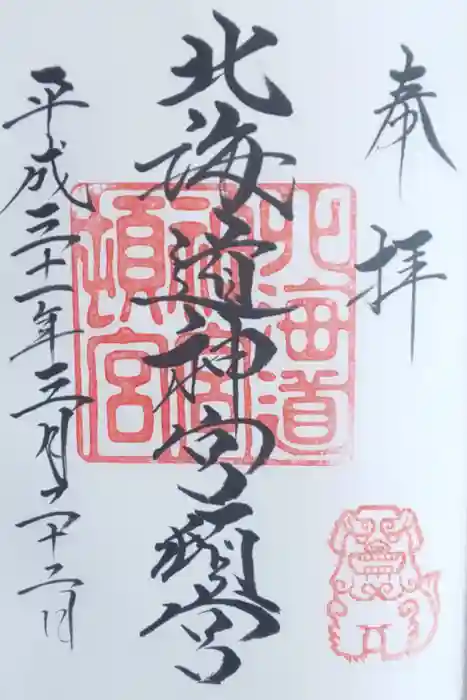 奉拝
北海道神宮頓宮
平成三十一年三月二十二日
北海道神宮頓宮